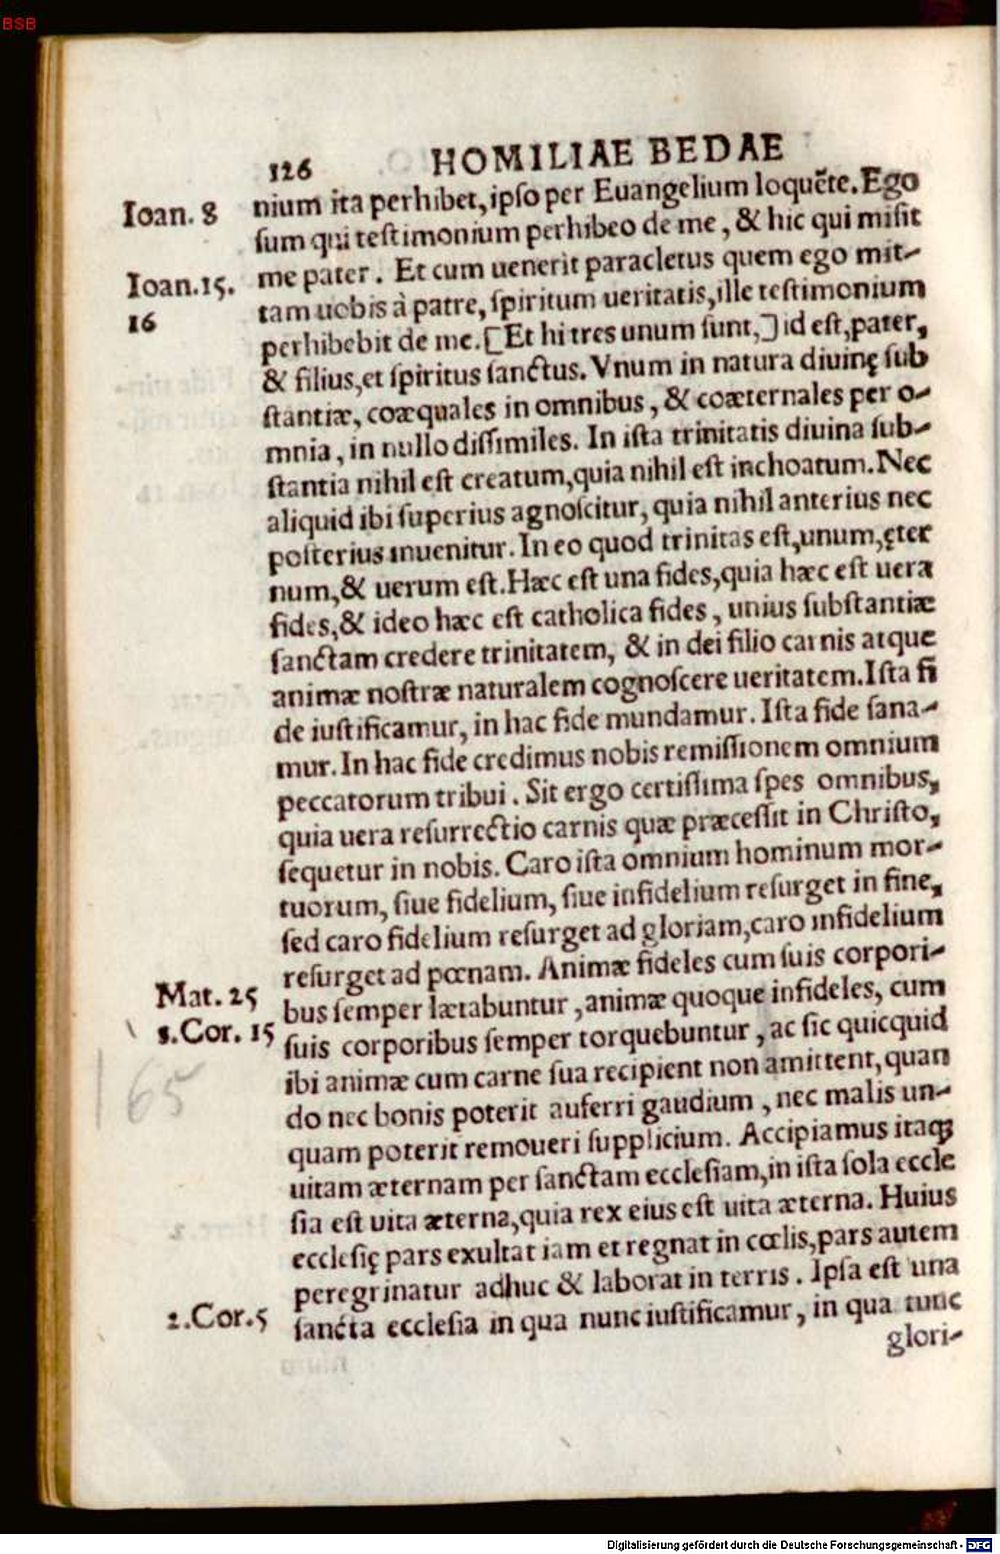 BSB
126 HOMILIAE BEDAE
Ioan. 8 nium ita perhibet, ipſo per Euangelium loquẽte. Ego
ſum qui teſtimonium perhibeo de me, & hic qui miſit
Ioan. 15. me pater. Et cum uenerit paracletus quem ego mit-
16 tam uobis à patre, ſpiritum ueritatis, ille teſtimonium
perhibebit de me. [Et hi tres unum ſunt,] id eſt, pater,
& filius, et ſpiritus ſanctus. Vnum in natura diuinę ſub
ſtantiæ, coæquales in omnibus, & coæternales per o-
mnia, in nullo diſſimiles. In iſta trinitatis diuina ſub-
ſtantia nihil eſt creatum, quia nihil eſt inchoatum. Nec
aliquid ibi ſuperius agnoſcitur, quia nihil anterius nec
poſterius inuenitur. In eo quod trinitas eſt, unum, ęter
num, & uerum eſt. Hæc eſt una fides, quia hæc eſt uera
fides, & ideo hæc eſt catholica fides, unius ſubſtantiæ
ſanctam credere trinitatem, & in dei filio carnis atque
animæ noſtræ naturalem cognoſcere ueritatem. Iſta fi
de iuſtificamur, in hac fide mundamur. Iſta fide ſana-
mur. In hac fide credimus nobis remiſſionem omnium
peccatorum tribui. Sit ergo certiſſima ſpes omnibus,
quia uera reſurrectio carnis quæ præceſſit in Chriſto,
ſequetur in nobis. Caro iſta omnium hominum mor-
tuorum, ſiue fidelium, ſiue infidelium reſurget in fine,
ſed caro fidelium reſurget ad gloriam, caro infidelium
reſurget ad pœnam. Animæ fideles cum ſuis corpori-
Mat. 25 bus ſemper lætabuntur, animæ quoque infideles, cum
1. Cor. 15 ſuis corporibus ſemper torquebuntur, ac ſic quicquid
ibi animæ cum carne ſua recipient non amittent, quan
165
do nec bonis poterit auferri gaudium, nec malis un-
quam poterit remoueri ſupplicium. Accipiamus itaqꝫ
uitam æternam per ſanctam eccleſiam, in iſta ſola eccle
ſia eſt uita æterna, quia rex eius eſt uita æterna. Huius
eccleſię pars exultat iam et regnat in cœlis, pars autem
peregrinatur adhuc & laborat in terris. Ipſa eſt una
2. Cor. 5 ſancta eccleſia in qua nunc iuſtificamur, in qua tunc
glori-
Digitalisierung gefördert durch die Deutsche Forschungsgemeinschaft - DFG